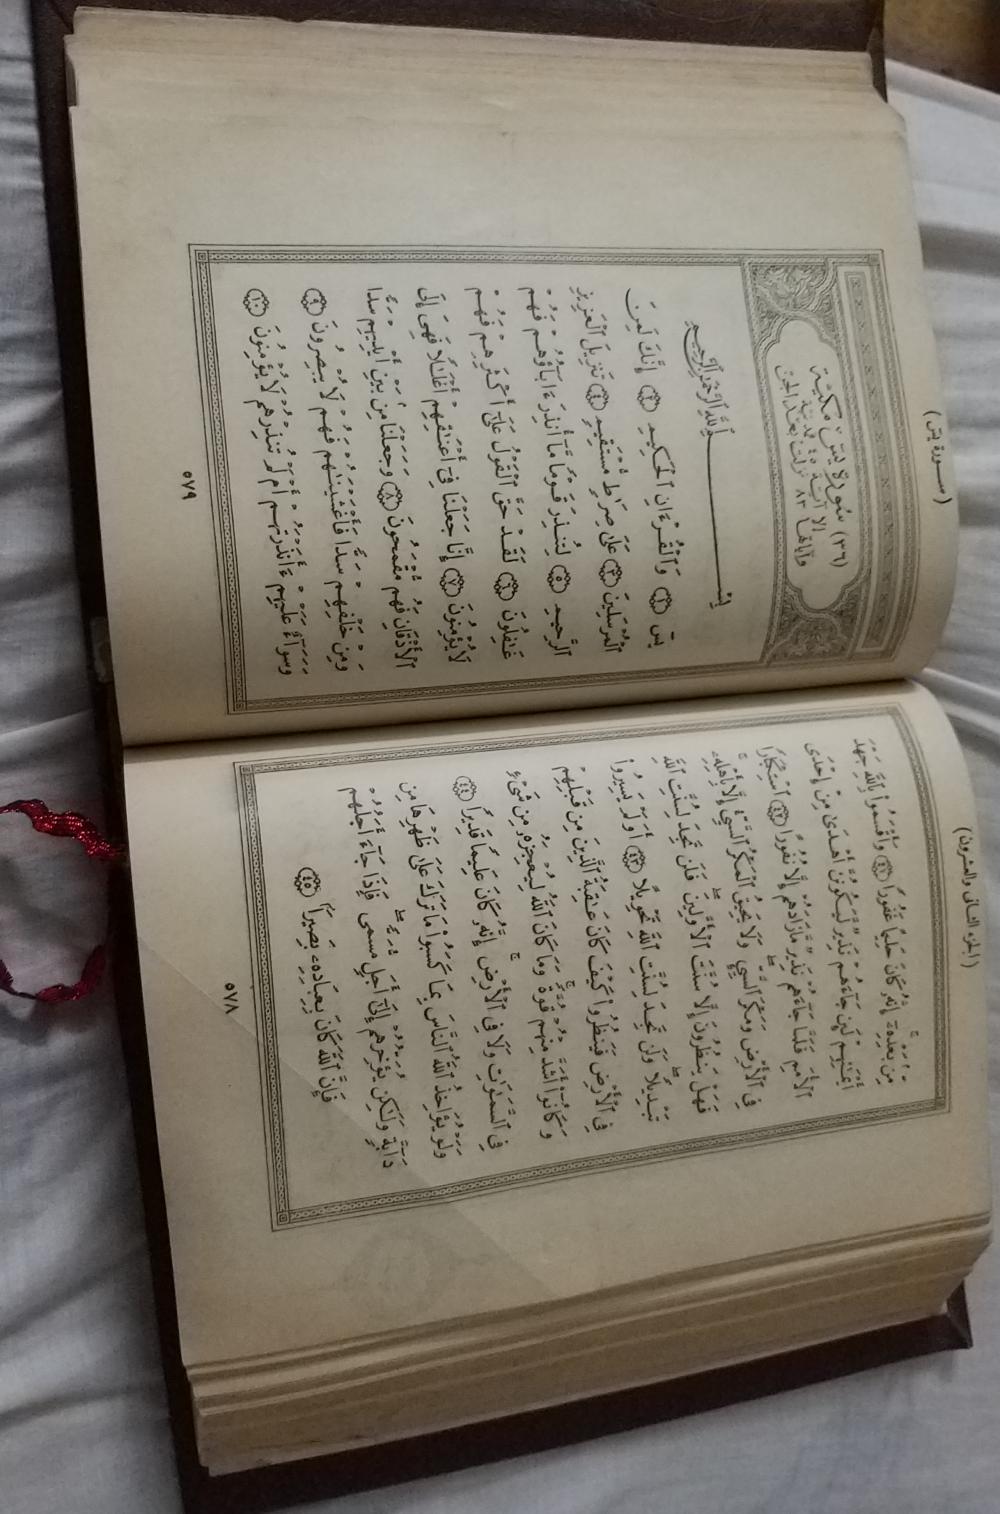 (الجزء الثانى والعشرون)
مِنْ بَعْدِهِۦٓ إِنَّهُۥ كَانَ حَلِيمًا غَفُورًا ٤١ وَأَقْسَمُوا۟ بِٱللَّهِ جَهْدَ
أَيْمَٰنِهِمْ لَئِن جَآءَهُمْ نَذِيرٌ لَّيَكُونُنَّ أَهْدَىٰ مِنْ إِحْدَى
ٱلْأُمَمِ فَلَمَّا جَآءَهُمْ نَذِيرٌ مَّا زَادَهُمْ إِلَّا نُفُورًا ٤٢ ٱسْتِكْبَارًا
فِى ٱلْأَرْضِ وَمَكْرَ ٱلسَّيِّئِ وَلَا يَحِيقُ ٱلْمَكْرُ ٱلسَّيِّئُ إِلَّا بِأَهْلِهِۦ
فَهَلْ يَنظُرُونَ إِلَّا سُنَّتَ ٱلْأَوَّلِينَ فَلَن تَجِدَ لِسُنَّتِ ٱللَّهِ
تَبْدِيلًا وَلَن تَجِدَ لِسُنَّتِ ٱللَّهِ تَحْوِيلًا ٤٣ أَوَلَمْ يَسِيرُوا۟
فِى ٱلْأَرْضِ فَيَنظُرُوا۟ كَيْفَ كَانَ عَٰقِبَةُ ٱلَّذِينَ مِن قَبْلِهِمْ
وَكَانُوٓا۟ أَشَدَّ مِنْهُمْ قُوَّةً وَمَا كَانَ ٱللَّهُ لِيُعْجِزَهُۥ مِن شَىْءٍ
فِى ٱلسَّمَٰوَٰتِ وَلَا فِى ٱلْأَرْضِ إِنَّهُۥ كَانَ عَلِيمًا قَدِيرًا ٤٤
وَلَوْ يُؤَاخِذُ ٱللَّهُ ٱلنَّاسَ بِمَا كَسَبُوا۟ مَا تَرَكَ عَلَىٰ ظَهْرِهَا مِن
دَآبَّةٍ وَلَٰكِن يُؤَخِّرُهُمْ إِلَىٰٓ أَجَلٍ مُّسَمًّى فَإِذَا جَآءَ أَجَلُهُمْ
فَإِنَّ ٱللَّهَ كَانَ بِعِبَادِهِۦ بَصِيرًۢا ٤٥
٥٧٨
(سورة يس)
(٣٦) سُورَةِ يسٓ مَكِّيَّة
إلا آية ٤٥ فمدنية
وآياتها ٨٣ نزلت بعد الجن
بِسْمِ ٱللَّهِ ٱلرَّحْمَٰنِ ٱلرَّحِيمِ
يسٓ ١ وَٱلْقُرْءَانِ ٱلْحَكِيمِ ٢ إِنَّكَ لَمِنَ
ٱلْمُرْسَلِينَ ٣ عَلَىٰ صِرَٰطٍ مُّسْتَقِيمٍ ٤ تَنزِيلَ ٱلْعَزِيزِ
ٱلرَّحِيمِ ٥ لِتُنذِرَ قَوْمًا مَّآ أُنذِرَ ءَابَآؤُهُمْ فَهُمْ
غَٰفِلُونَ ٦ لَقَدْ حَقَّ ٱلْقَوْلُ عَلَىٰٓ أَكْثَرِهِمْ فَهُمْ
لَا يُؤْمِنُونَ ٧ إِنَّا جَعَلْنَا فِىٓ أَعْنَٰقِهِمْ أَغْلَٰلًا فَهِىَ إِلَى
ٱلْأَذْقَانِ فَهُم مُّقْمَحُونَ ٨ وَجَعَلْنَا مِنۢ بَيْنِ أَيْدِيهِمْ سَدًّا
وَمِنْ خَلْفِهِمْ سَدًّا فَأَغْشَيْنَٰهُمْ فَهُمْ لَا يُبْصِرُونَ ٩
وَسَوَآءٌ عَلَيْهِمْ ءَأَنذَرْتَهُمْ أَمْ لَمْ تُنذِرْهُمْ لَا يُؤْمِنُونَ ١٠
٥٧٩